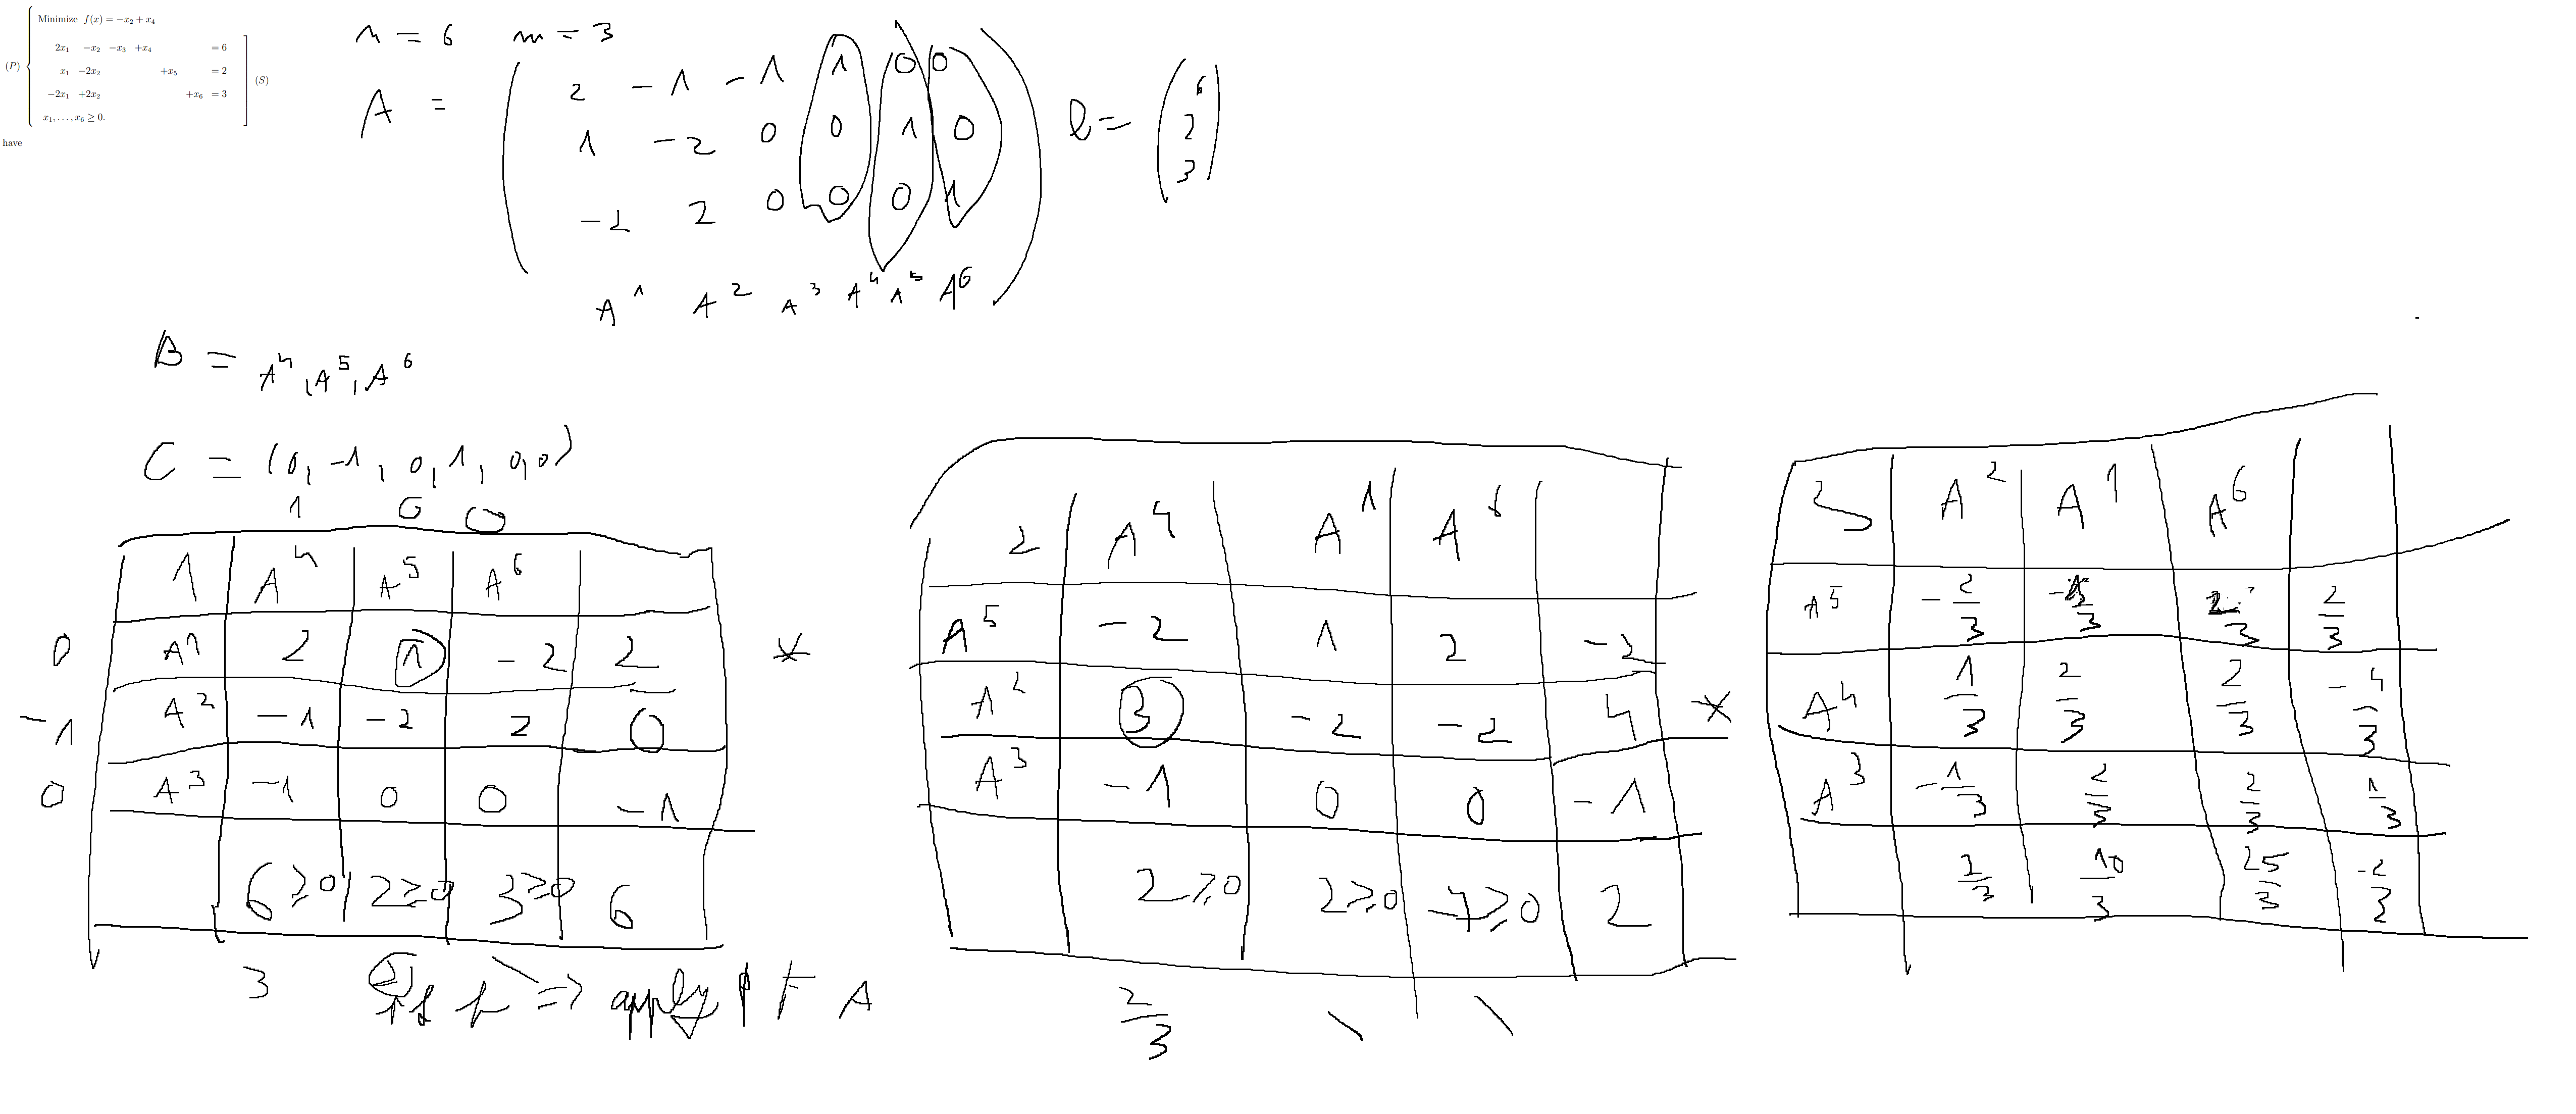 Minimize f(x) = −x₂ + x₄
2x₁ −x₂ −x₃ +x₄ = 6
(P) x₁ −2x₂ +x₅ = 2 (S)
−2x₁ +2x₂ +x₆ = 3
x₁, . . . , x₆ ≥ 0.
have
n = 6 m = 3
A = ( 2 -1 -1 1 0 0
1 -2 0 0 1 0
-2 2 0 0 0 1 )
b = ( 6
2
3 )
A¹ A² A³ A⁴ A⁵ A⁶
B = A⁴, A⁵, A⁶
C = (0, -1, 0, 1, 0, 0)
1 0 0
1 A⁴ A⁵ A⁶
0 A¹ 2 1 -2 2 *
-1 A² -1 -2 2 0
0 A³ -1 0 0 -1
6≥0 2≥0 3≥0 6
3 2 \
if f => apply PTA
2 A⁴ A¹ A⁶
A⁵ -2 1 2 -2
A² 3 -2 -2 4 *
A³ -1 0 0 -1
2≥0 2≥0 7≥0 2
2/3 \ \
3 A² A¹ A⁶
A⁵ -2/3 2/3 2/3
A⁴ 1/3 2/3 2/3 -4/3
A³ -1/3 2/3 2/3 1/3
2/3 10/3 25/3 -2/3